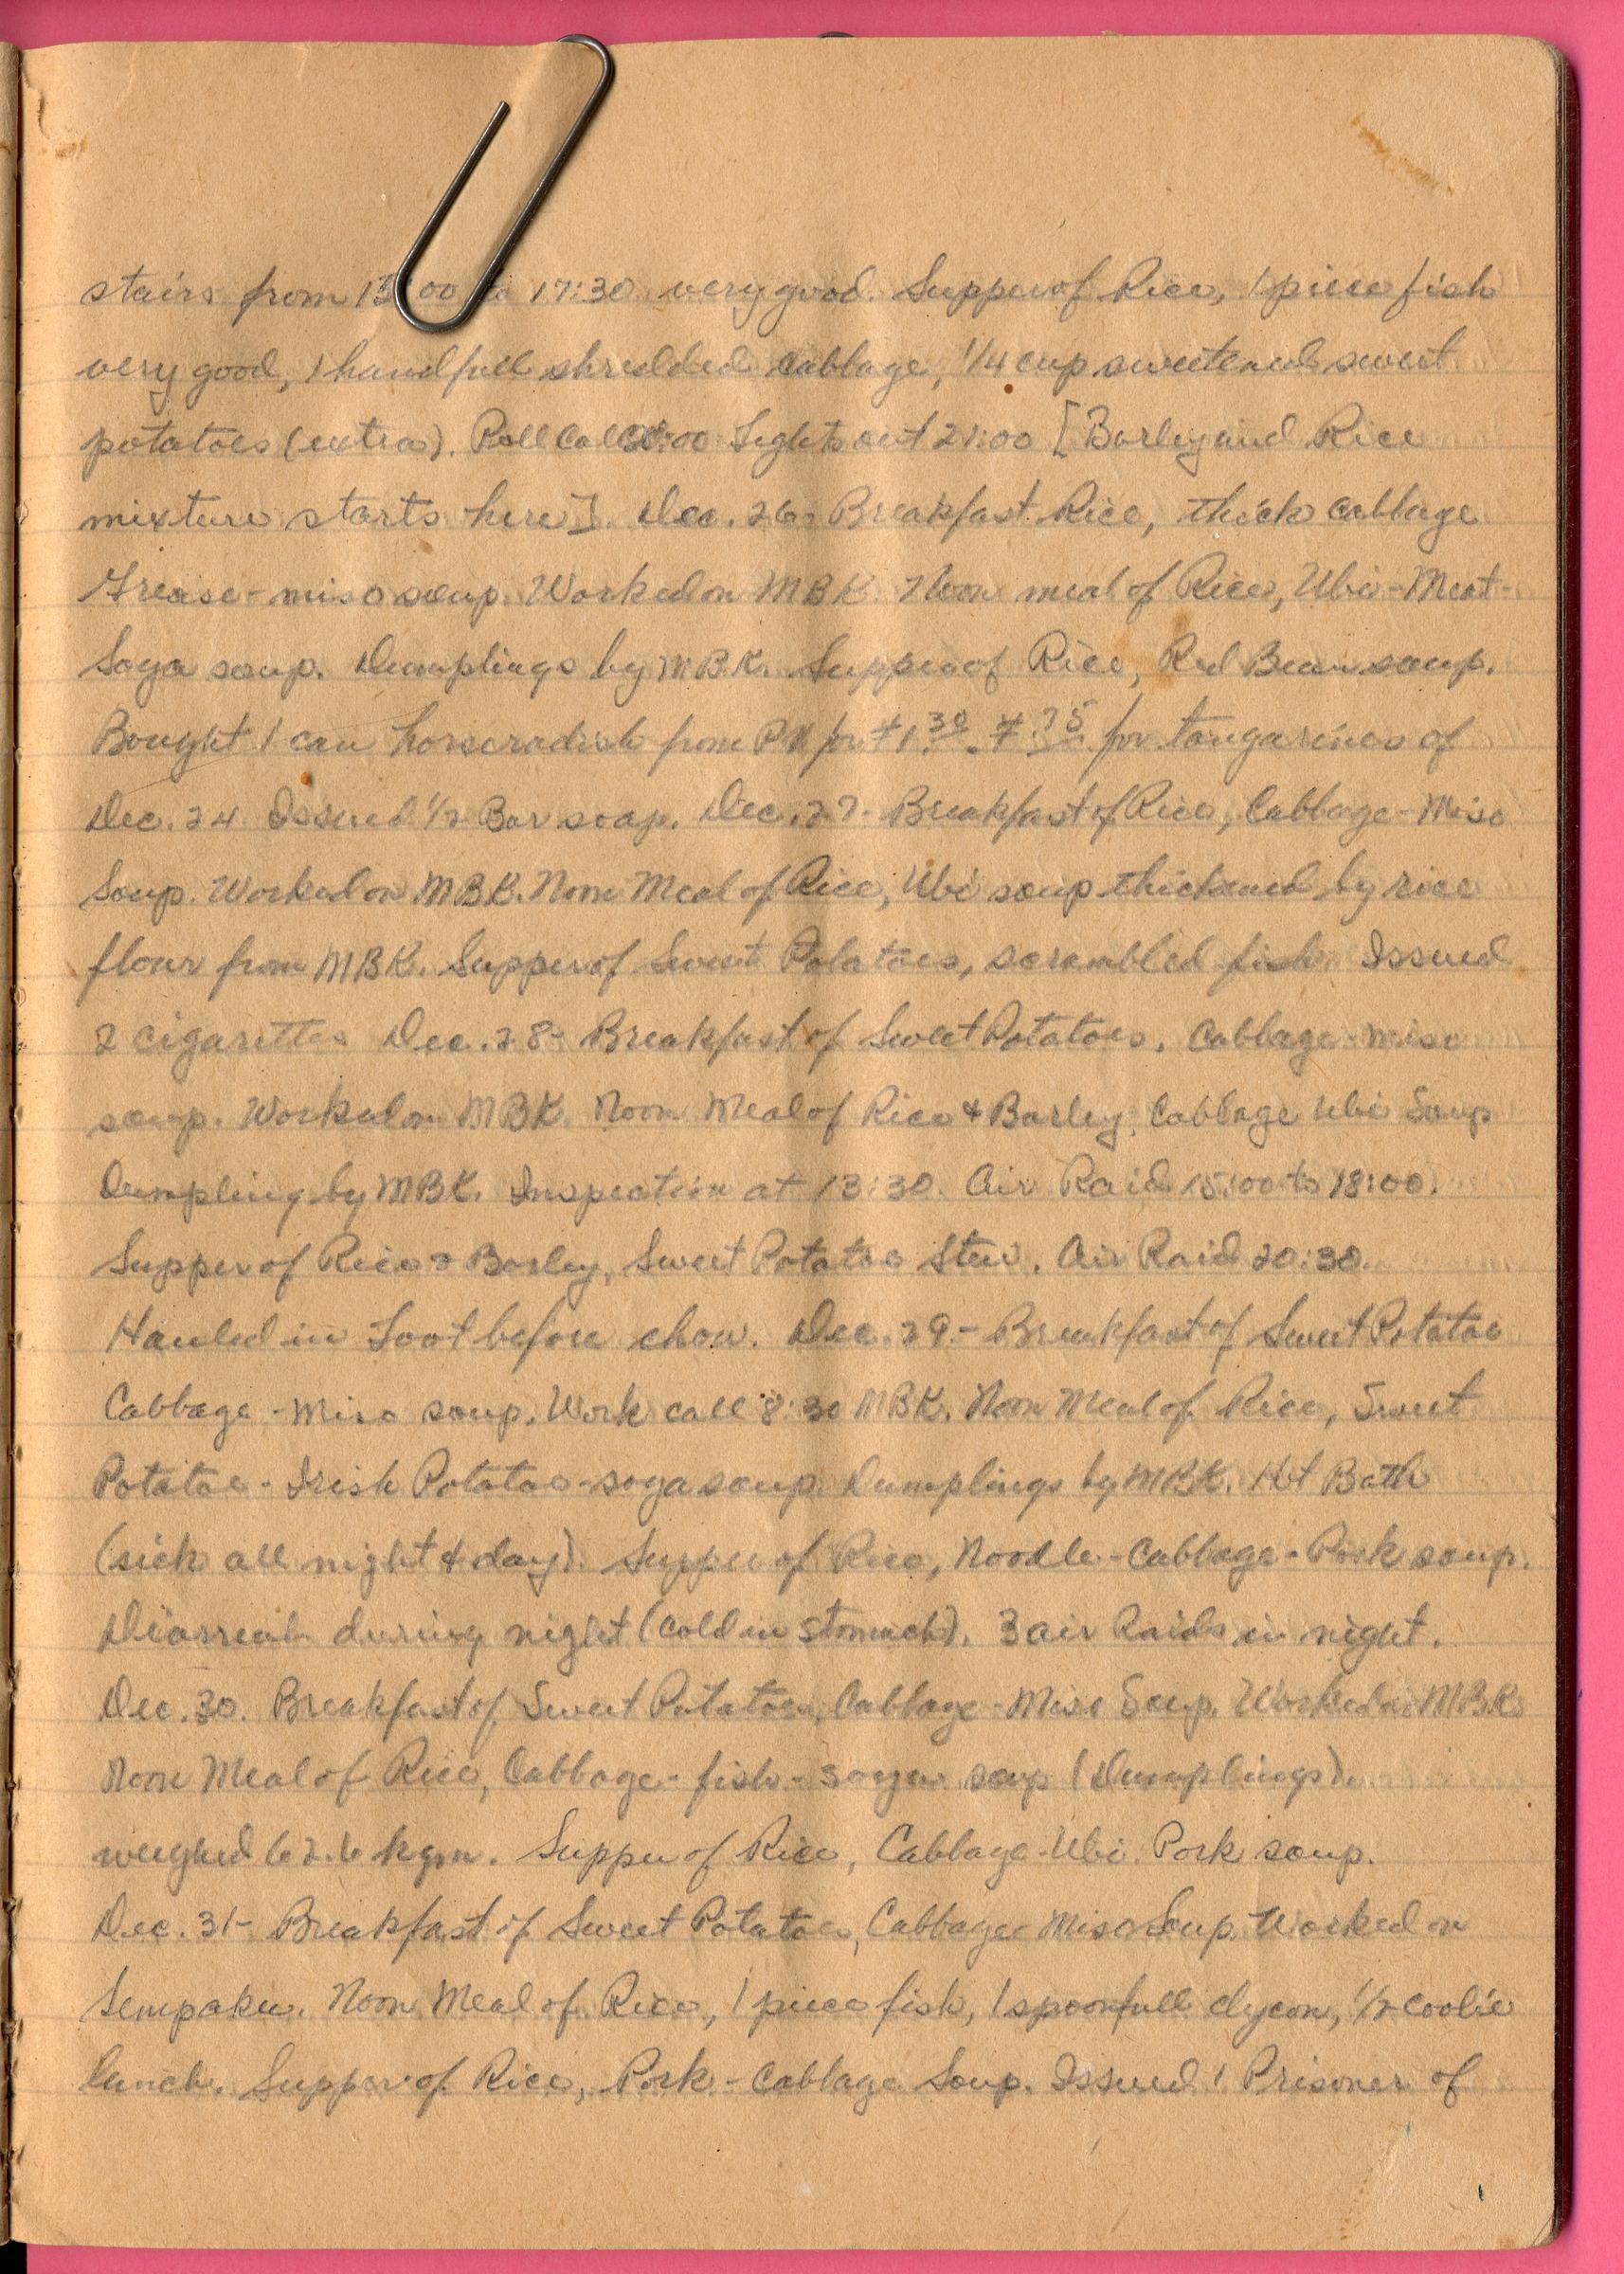 stairs from 15:00 to 17:30 very good. Supper of Rice, 1 piece fish
very good, 1 handfull shredded cabbage, 1/4 cup sweetened sweet
potatoes (extra). Roll Call 20:00 Lights out 21:00 [Barley and Rice
mixture starts here]. Dec. 26- Breakfast Rice, thick cabbage
Grease-miso soup. Worked on MBK. Noon meal of Rice, Ubi-Meat-
Soya soup. Dumplings by MBK. Supper of Rice, Red Bean soup.
Bought 1 can horseradish from PX for ¥1.30. ¥.75 for tangarines of
Dec. 24 Issued 1/2 Bar soap. Dec. 27- Breakfast of Rice, Cabbage-Miso
Soup. Worked on MBK. Noon Meal of Rice, Ubi soup thickened by rice
flour from MBK. Supper of Sweet Potatoes, scrambled fish. Issued
2 cigarettes Dec. 28- Breakfast of Sweet Potatoes, Cabbage-miso
soup. Worked on MBK. Noon Meal of Rice & Barley, Cabbage Ubi Soup
Dumpling by MBK. Inspection at 13:30. Air Raid 15:00 to 18:00.
Supper of Rice & Barley, Sweet Potatoe Stew. Air Raid 20:30.
Hauled in Loot before chow. Dec. 29.- Breakfast of Sweet Potatoe
Cabbage-Miso soup. Work call 8:30 MBK. Noon Meal of Rice, Sweet
Potatoe-Irish Potatoe-soya soup Dumplings by MBK. Hot Bath
(sick all night & day). Supper of Rice, Noodle-Cabbage-Pork soup.
Diarreah during night (cold in stomach). 3 air Raids in night.
Dec. 30. Breakfast of Sweet Potatoes, Cabbage-Miso Soup. Worked on MBK
Noon Meal of Rice, Cabbage-fish-soya soup (Dumplings).
weighed 62.6 kgm. Supper of Rice, Cabbage-Ubi Pork soup.
Dec. 31- Breakfast of Sweet Potatoes, Cabbage Miso Soup. Worked on
Sempaku. Noon Meal of Rice, 1 piece fish, 1 spoonfull dycon, 1/2 coolie
lunch. Supper of Rice, Pork-Cabbage Soup. Issued 1 Prisoner of